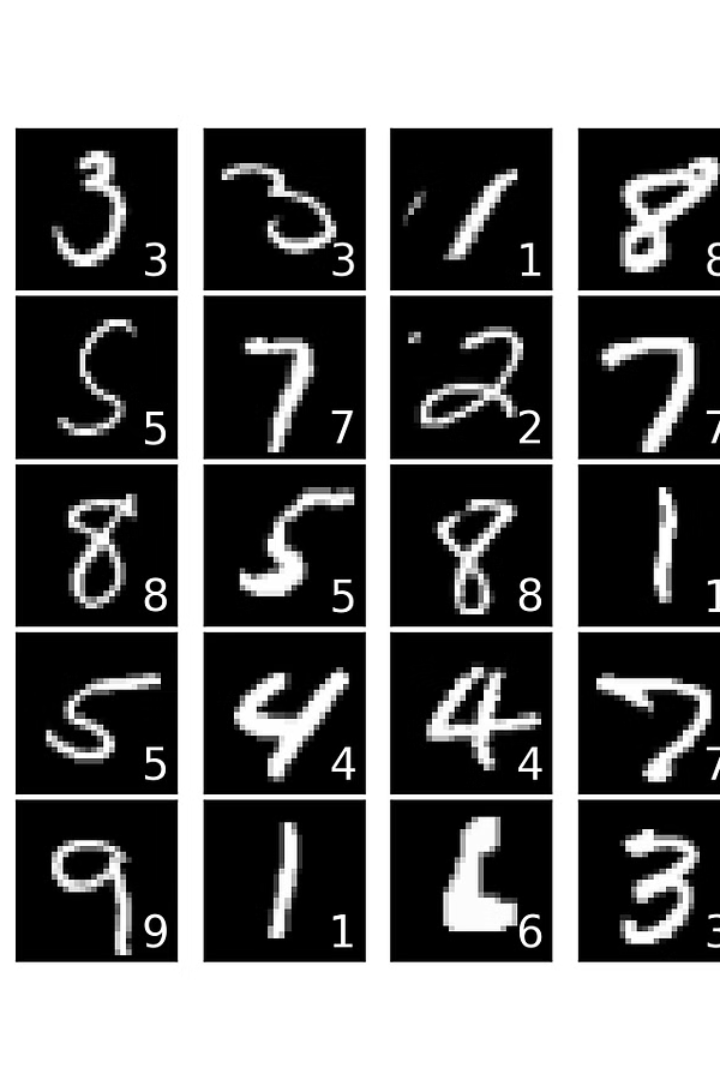 3 3 3 3 1 1 8 8
5 5 7 7 2 2 7 7
8 8 5 5 8 8 1 1
5 5 4 4 4 4 7 7
9 9 1 1 6 6 3 3